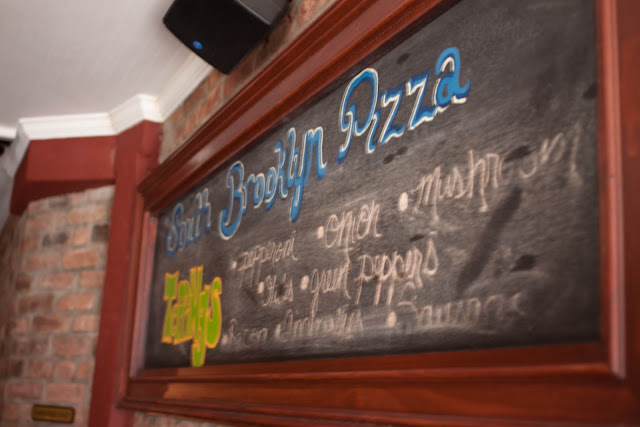 South Brooklyn Pizza
• pepperoni • onion • mushroom
Toppings • olives • green peppers
• Bacon • Anchovies • Sausage